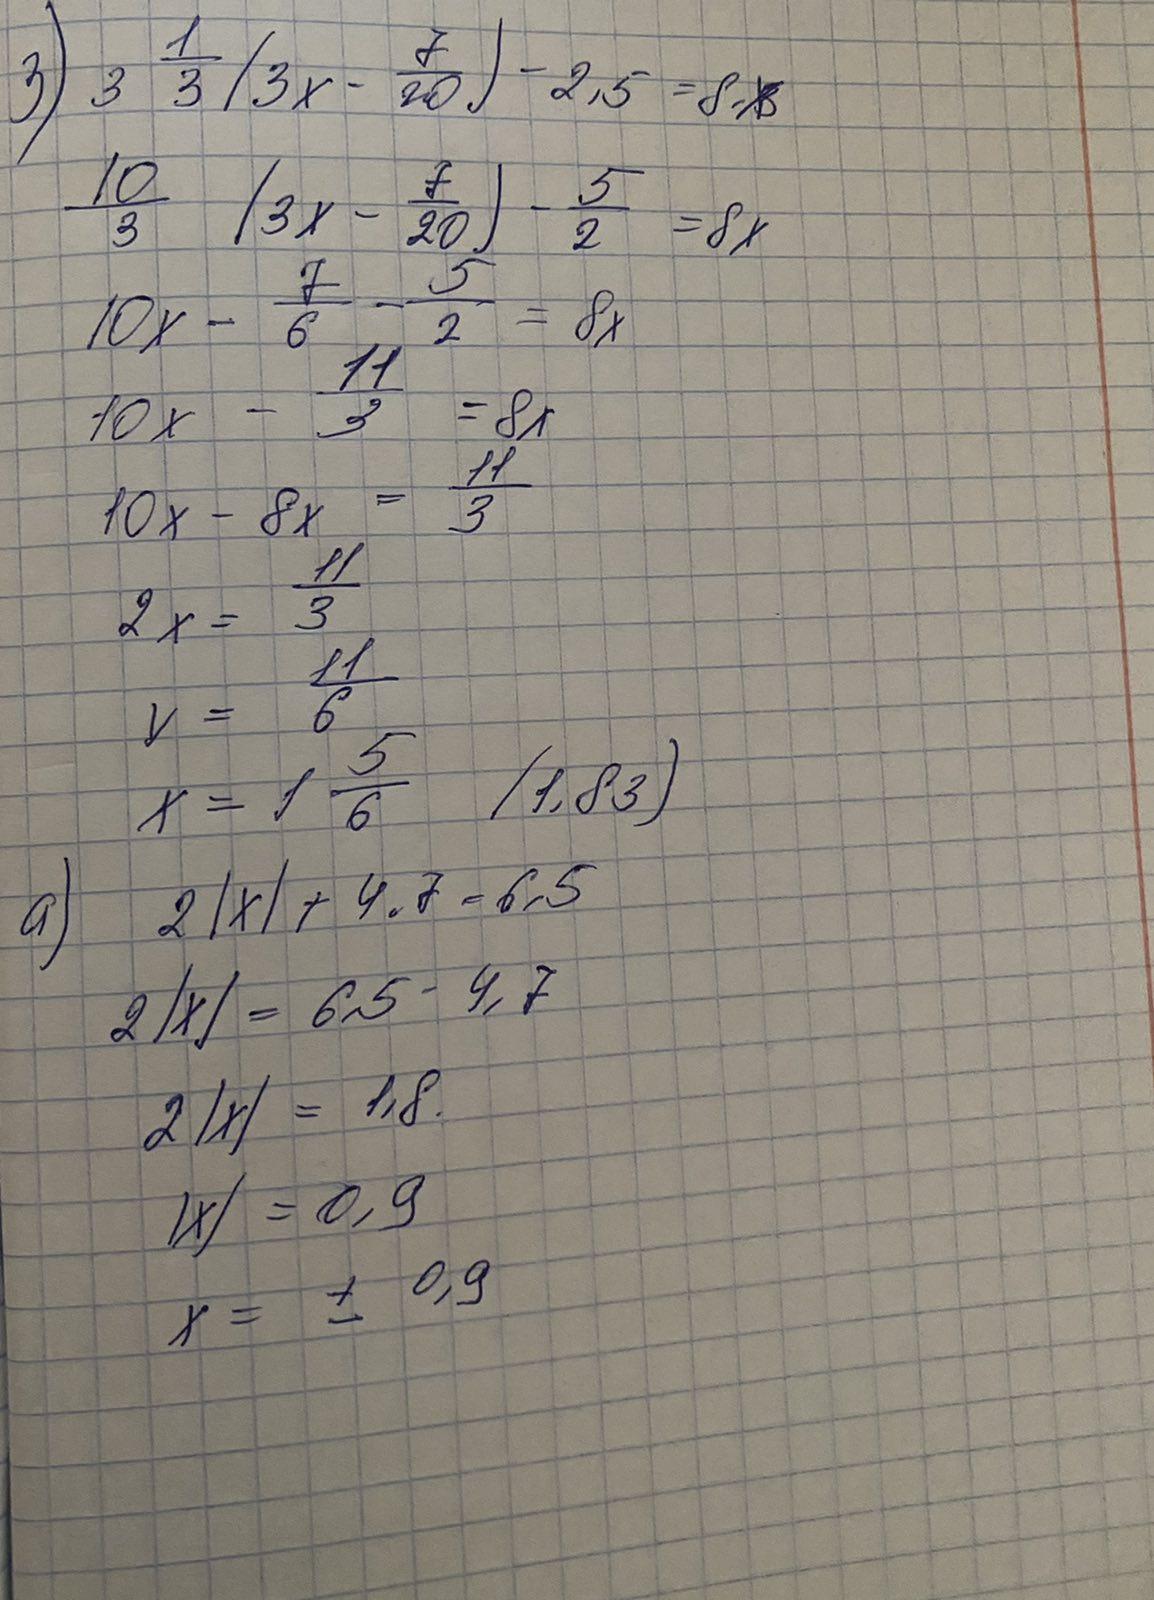 3) 3 1/3 (3x - 7/20) - 2,5 = 8x
10/3 (3x - 7/20) - 5/2 = 8x
10x - 7/6 - 5/2 = 8x
10x - 11/3 = 8x
10x - 8x = 11/3
2x = 11/3
x = 11/6
x = 1 5/6 (1,83)
a) 2|x| + 4.7 = 6,5
2|x| = 6,5 - 4,7
2|x| = 1,8.
|x| = 0,9
x = ± 0,9